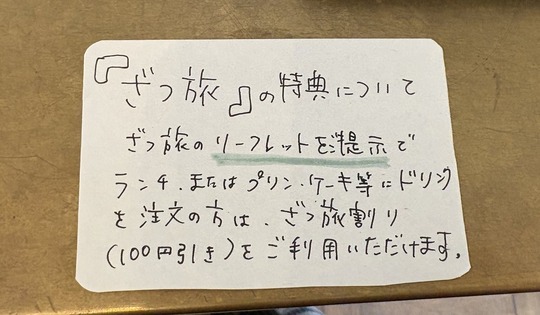 『ざつ旅』の特典について
ざつ旅のリーフレットをご提示で
ランチ、またはプリン・ケーキ等にドリンク
を注文の方は、ざつ旅割り
(100円引き)をご利用いただけます。